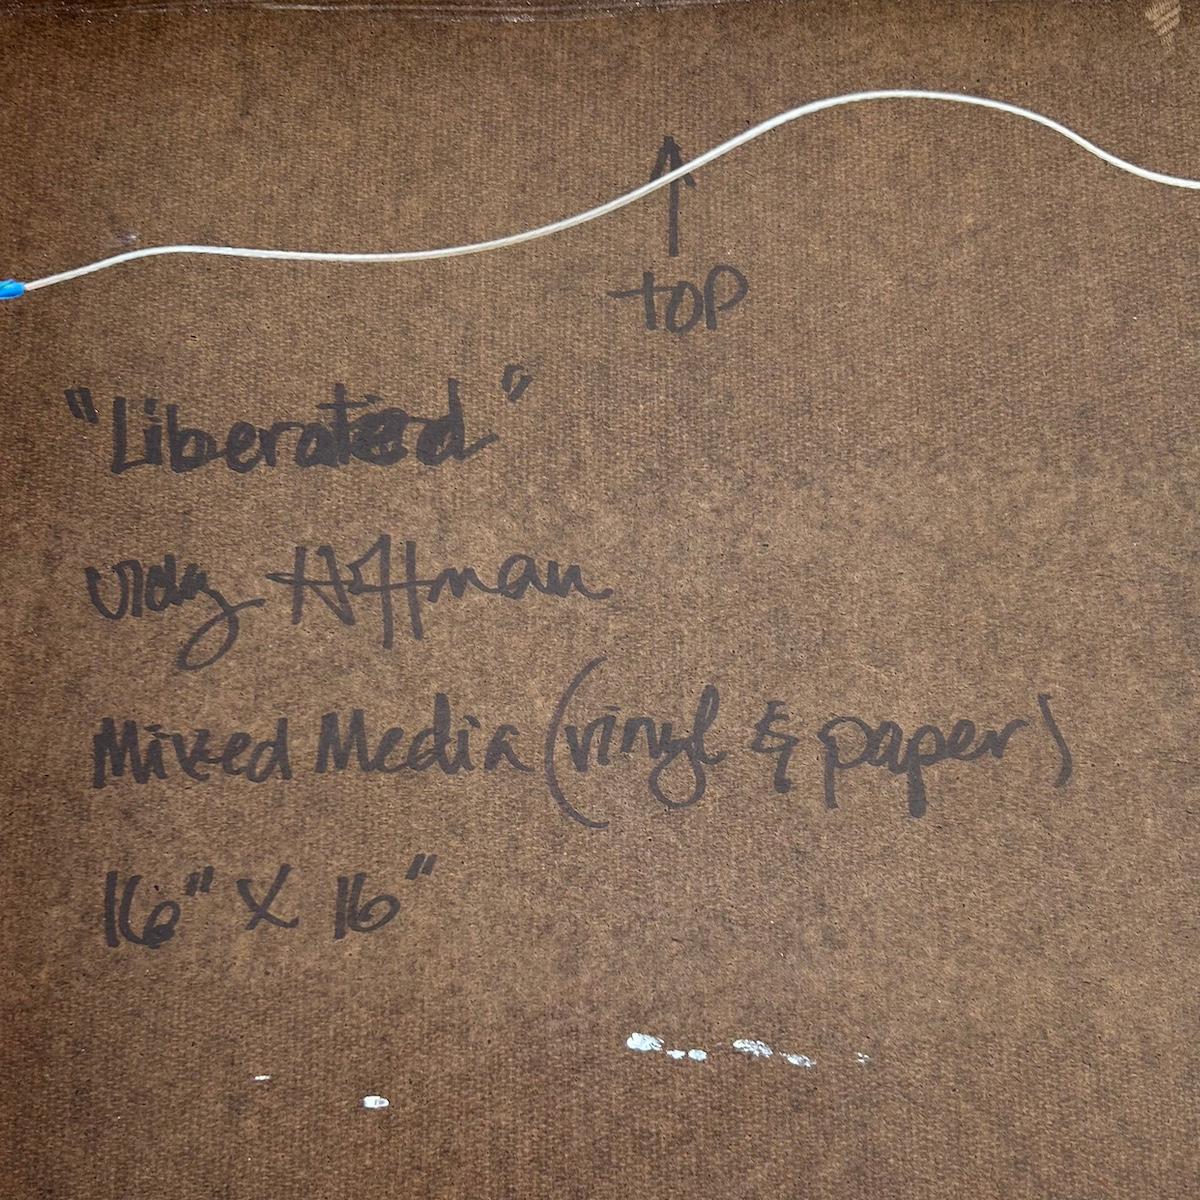 ↑
TOP
"Liberated"
Vicky Hoffman
Mixed Media (vinyl & paper)
16" X 16"